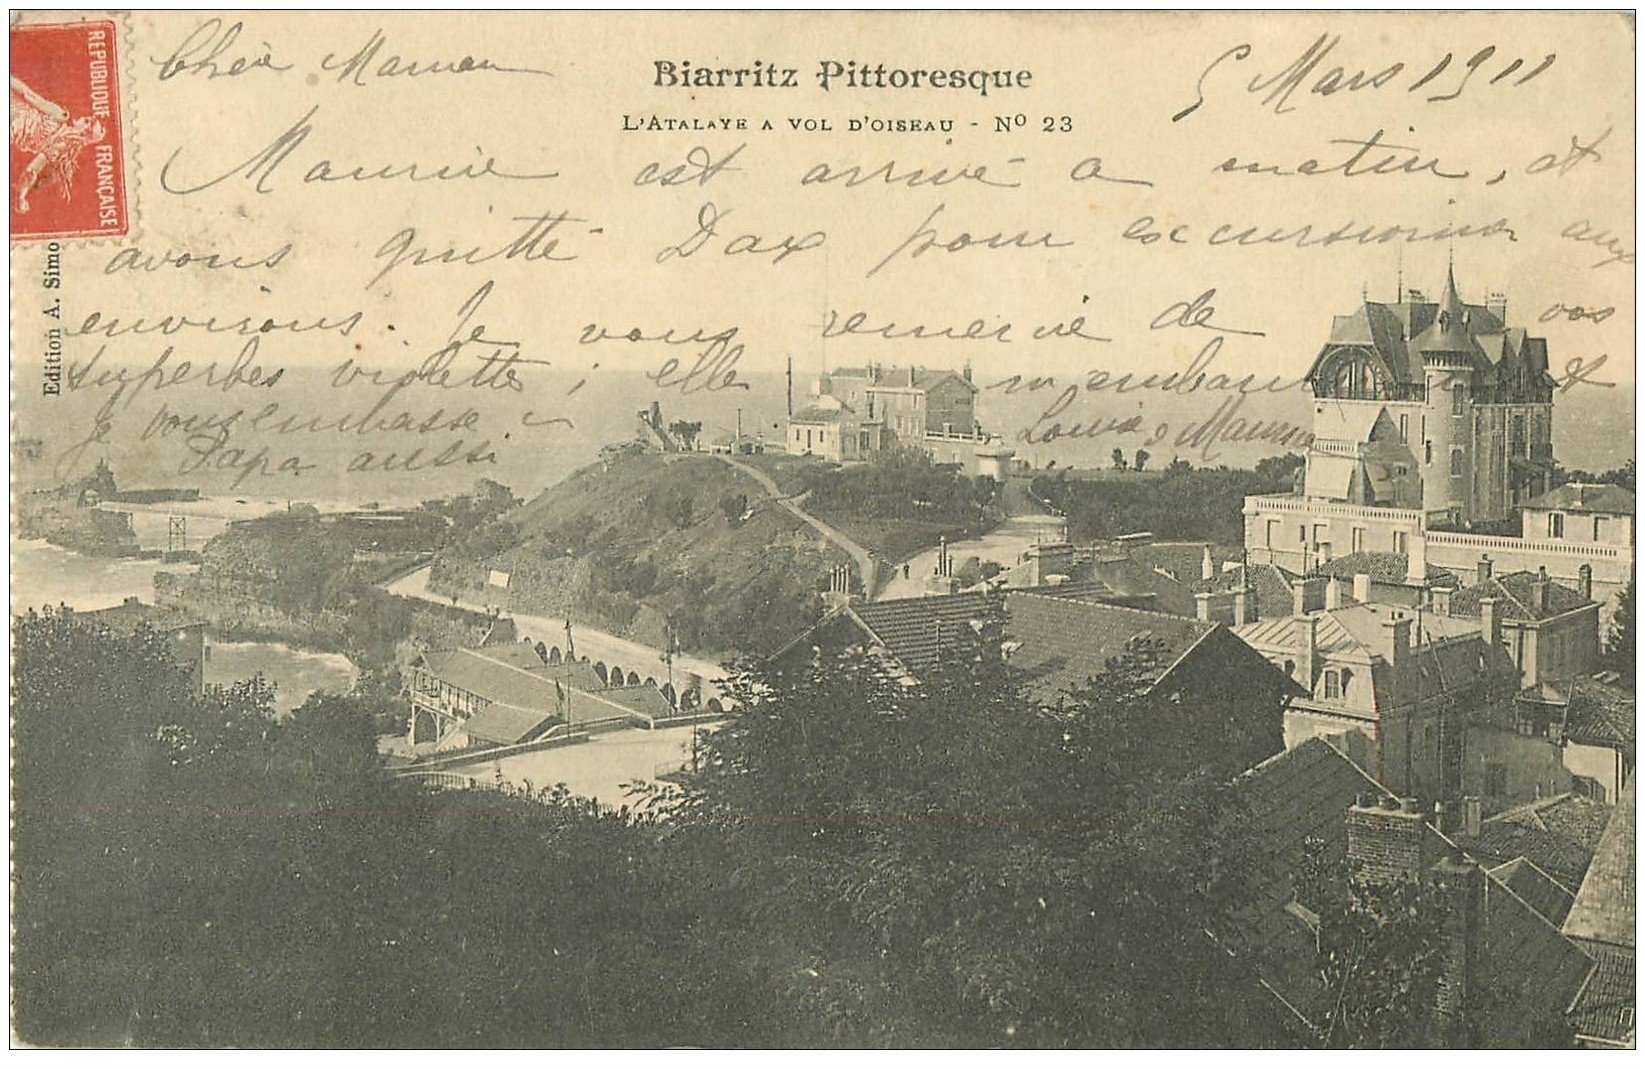 REPUBLIQUE FRANÇAISE
Chère Maman
5 Mars 1911
Biarritz Pittoresque
L'ATALAYE A VOL D'OISEAU - Nº 23
Maurice est arrivé a matin, et
avons quitté Dax pour excursionner aux
environs. Je vous remercie de vos
superbes violettes; elle m'embaument et
je vous embrasse
Louis & Maurice
Papa aussi
Edition A. Simo